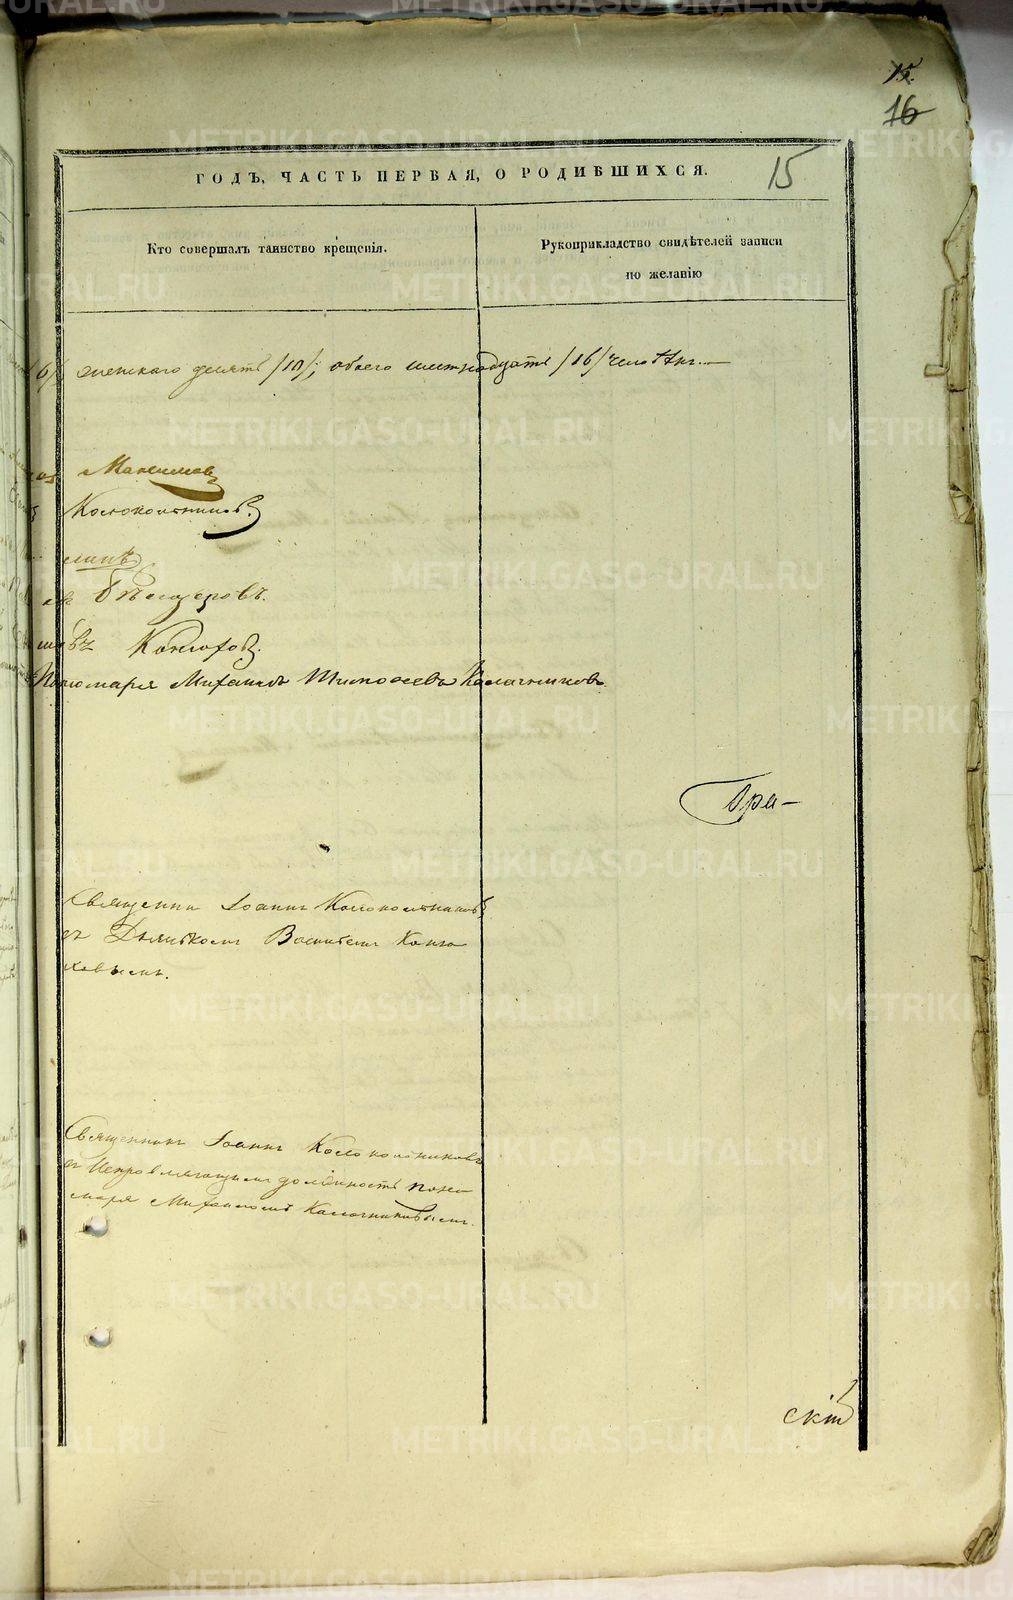 15.
16
15
ГОДЪ, ЧАСТЬ ПЕРВАЯ, О РОДИВШИХСЯ.
Кто совершалъ таинство крещенія.
Рукоприкладство свидѣтелей записи
по желанію
6/ женскаго десять /10/; обоего шестнадцать /16/ человѣкъ.—
Максимовъ
Колокольниковъ.
Кокшаровъ.
Пономаря Михаилъ Тимофеевъ Калачниковъ
Гра-
Священникъ Іоаннъ Колокольниковъ
съ Дьячкомъ Василіемъ Кокша
ровымъ.
Священникъ Іоаннъ Колокольниковъ
съ Исправляющимъ должность поно
маря Михаиломъ Калачниковымъ.
скій
METRIKI.GASO-URAL.RU